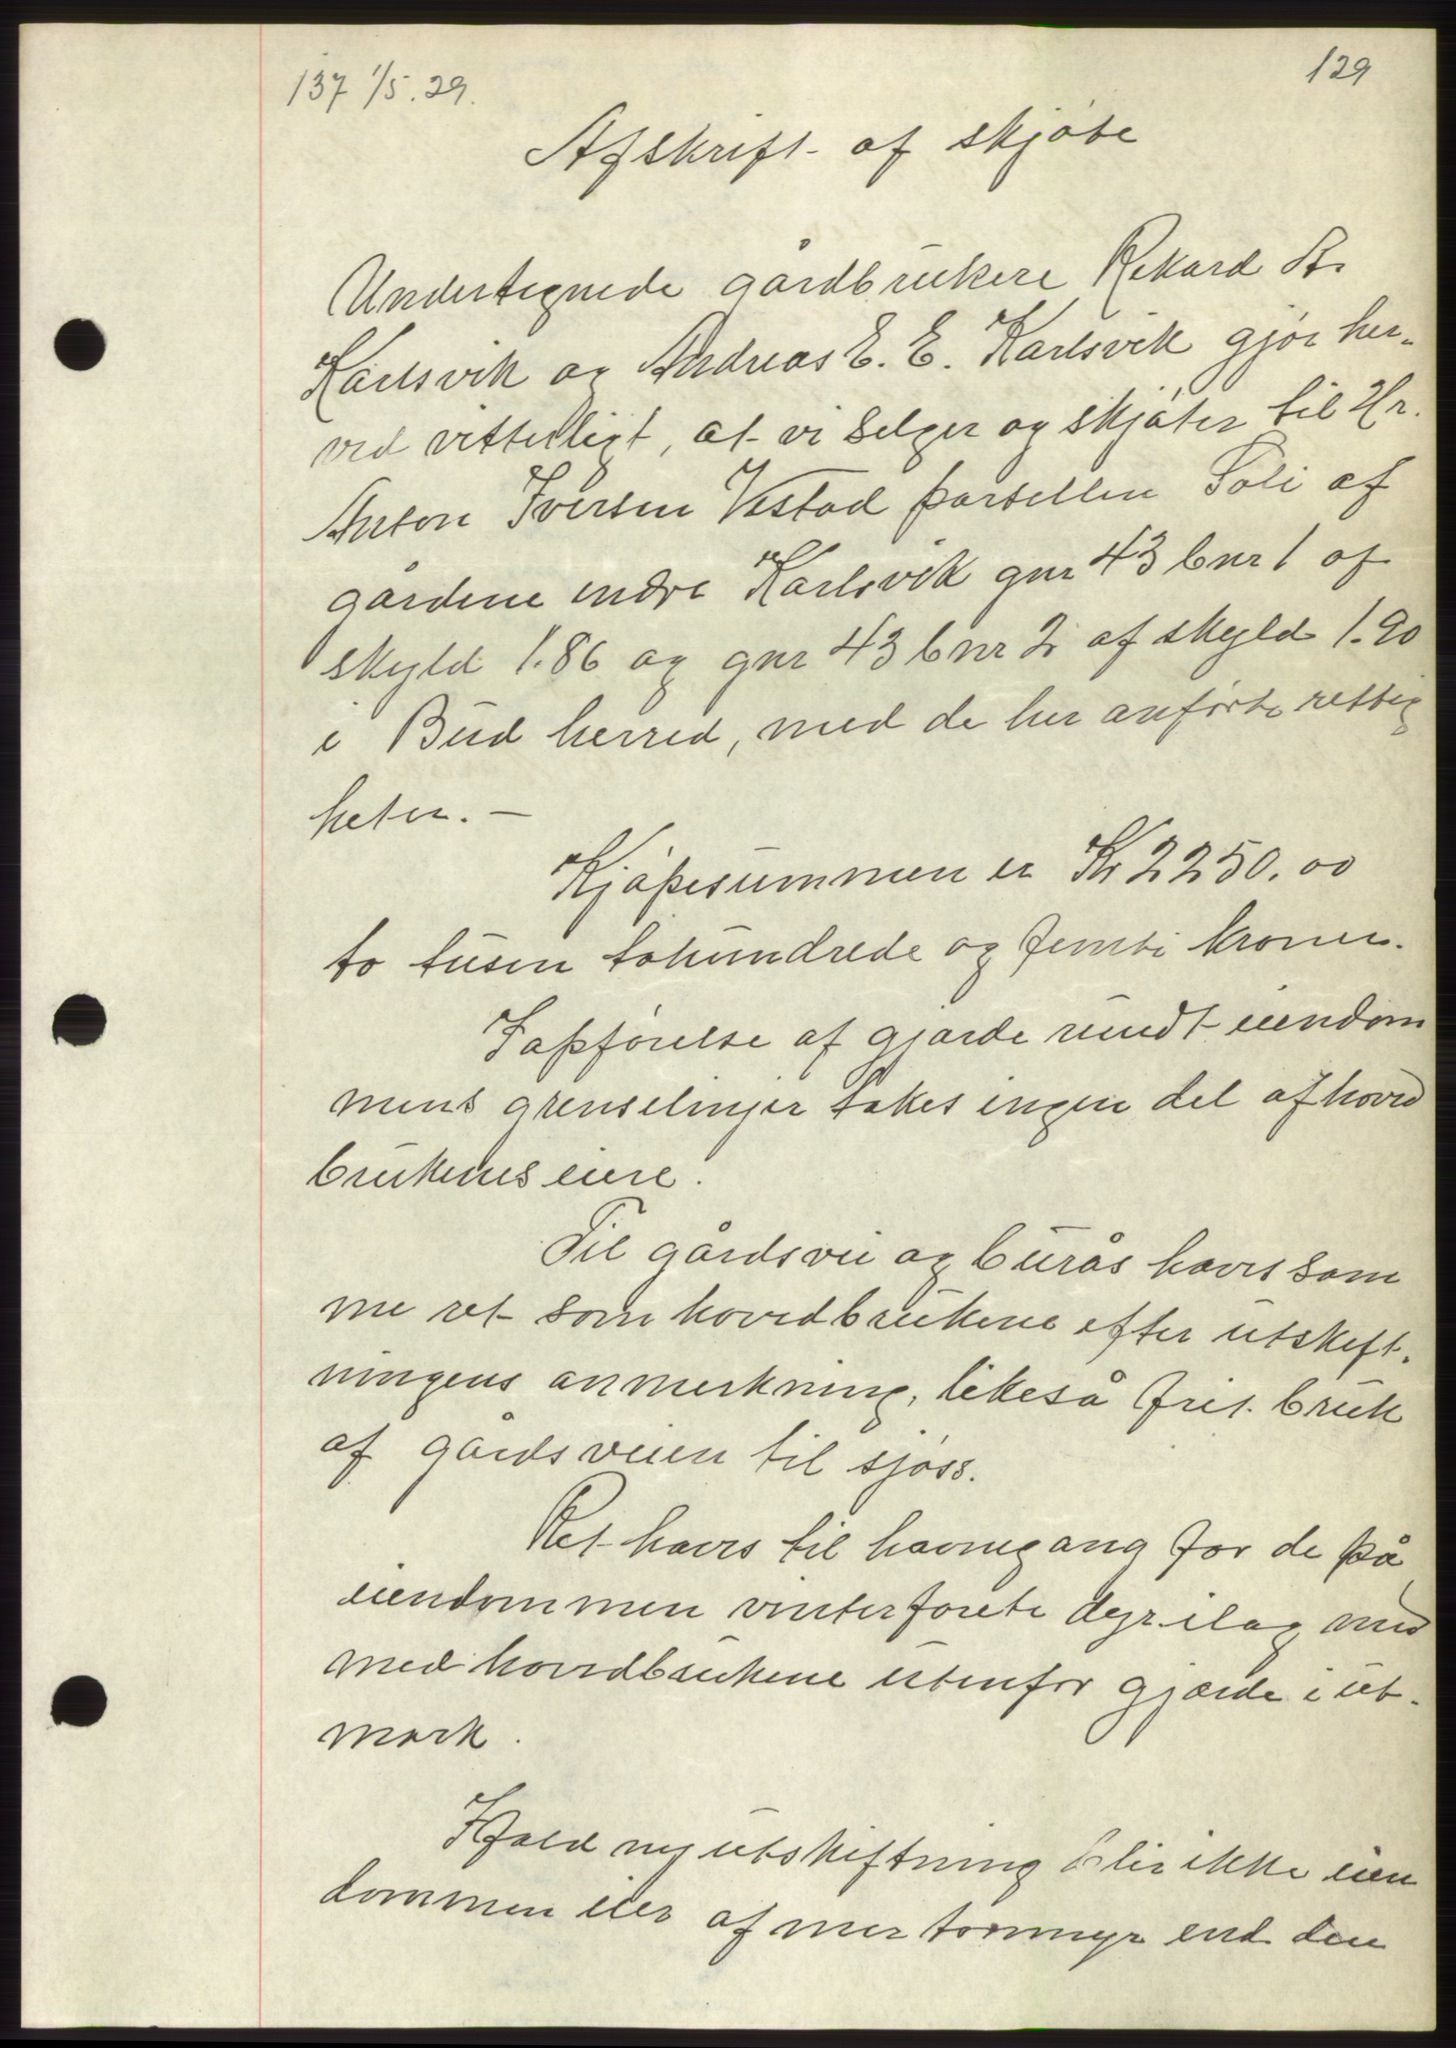 137 1/5.29.
129
Afskrift af skjøte
Undertegnede gårdbrukere Rekard St.
Karlsvik og Andreas E. E. Karlsvik gjør her-
ved vitterligt, at vi selger og skjøter til Hr.
Anton Iversen Vestad parsellen Soli af
gårdene indre Karlsvik gnr 43 bnr 1 af
skyld 1.86 og gnr 43 bnr 2 af skyld 1.90
i Bud herred, med de her anførte rettig
heter. —
Kjøpesummen er Kr 2250.00
to tusen tohundrede og femti kroner.
I opførelse af gjærde rundt eiendom
mens grenselinjer takes ingen del af hoved
brukenes eiere.
Til gårdsvei og burås haves sam
me ret som hovedbrukene efter utskift-
ningens anmerkning, likeså frit bruk
af gårdsveien til sjøss.
Ret haves til havnegang for de på
eiendommen vinterforete dyr ilag med
med hovedbrukene utenfor gjærde i ut-
mark.
I fald ny utskiftning blir ikke eien
dommen eier af mer torvmyr end den